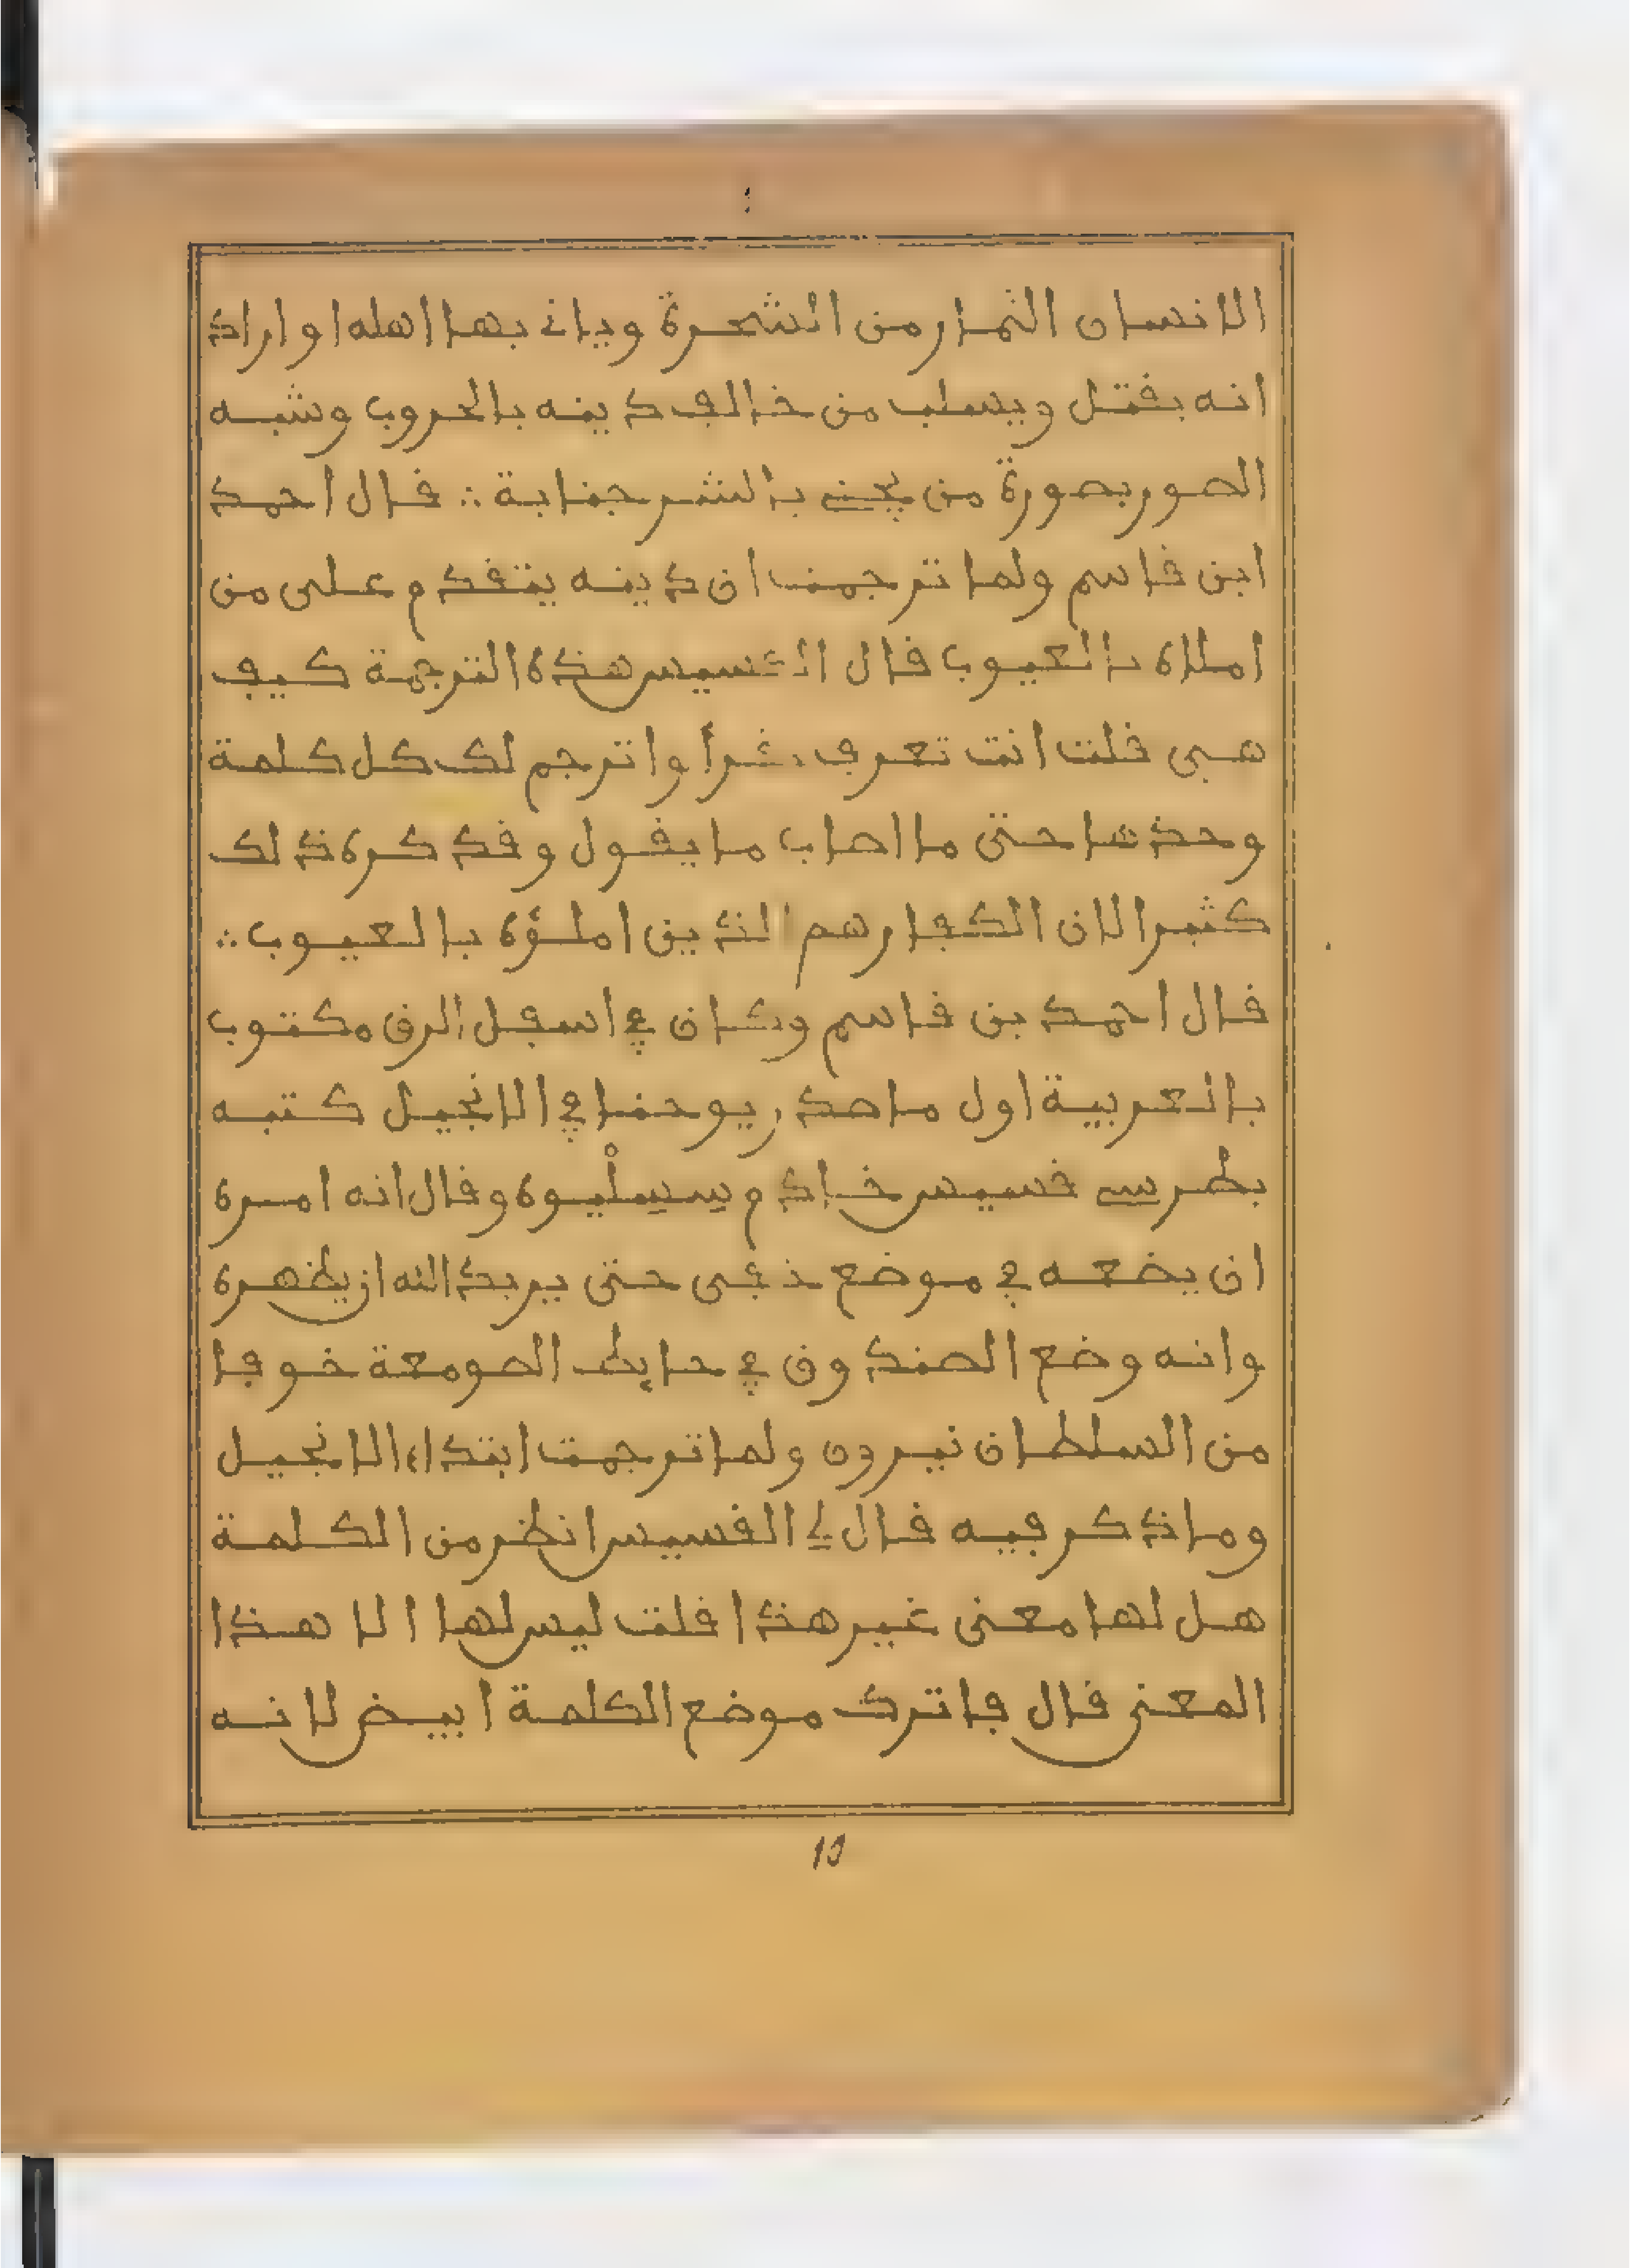 الانسان الثمار من الشجرة وياتى بها اهله او اراد
انه يقتل ويسلب من خالف دينه بالحروب وشبه
الصور بصورة من يجنى بالشر جناية ∴ قال احمد
ابن قاسم ولما ترجمت ان دينه يتقدم على من
املاه بالعيوب قال القسيس هذه الترجمة كيف
هى قلت انت تعرف تقرأ واترجم لك كل كلمة
وحدها حتى ما اصاب ما يقول وقد كره ذلك
كثيرا لان الكفار هم الذين املؤه بالعيوب ∴
قال احمد بن قاسم وكان في اسفل الرق مكتوب
بالعربية اول ماصدر يوحنا في الانجيل كتبه
بطرس قسيس خادم سِسِلْيوه وقال انه امره
ان يضعه في موضع خفى حتى يريد الله ان يظهره
وانه وضع الصندوق في حايط الصومعة خوفا
من السلطان نيرون ولما ترجمت ابتداء الانجيل
وما ذكر فيه قال لى القسيس انظر من الكلمة
هل لها معنى غير هذا قلت ليس لها الا هذا
المعنى قال فاترك موضع الكلمة ابيض لانه
10